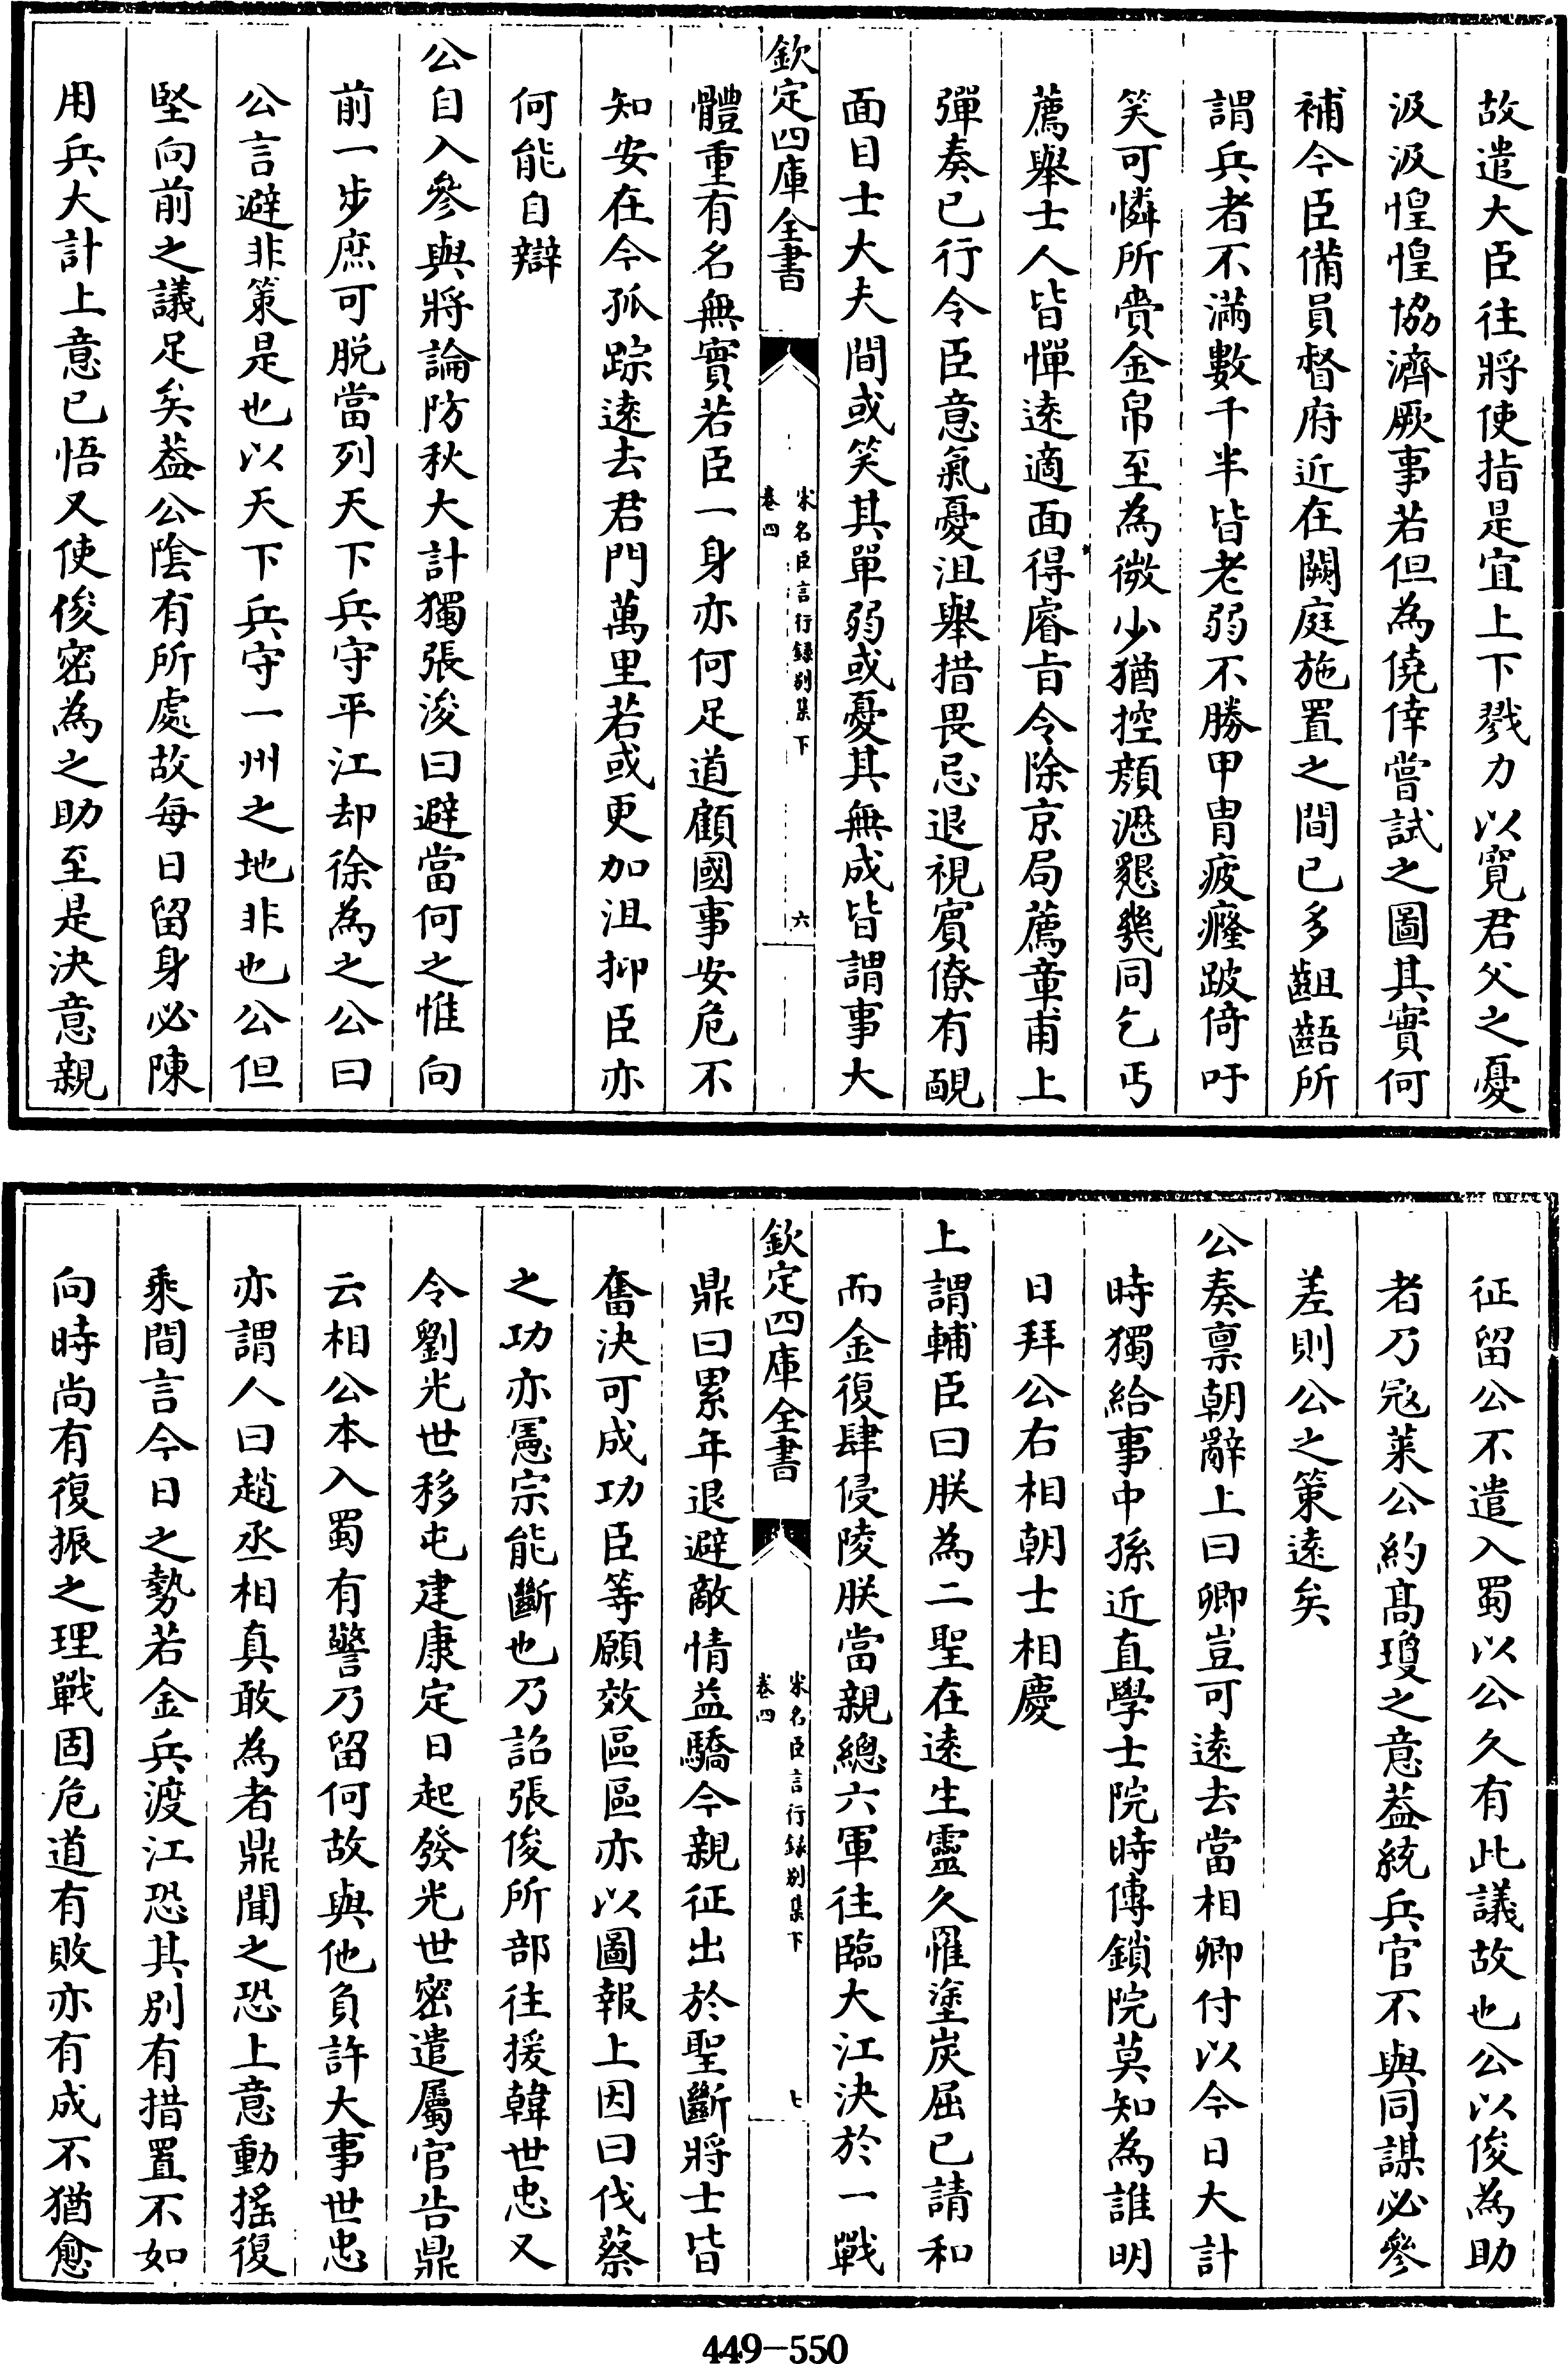 故遣大臣往將使指是宜上下戮力以寛君父之憂
汲汲惶惶協濟厥事若但為僥倖嘗試之圖其實何
補今臣備員督府近在闕庭施置之間已多齟齬所
謂兵者不滿數千半皆老弱不勝甲胄疲癃跛倚吁
笑可憐所賫金帛至為微少猶控顔瀝懇幾同乞丐
薦舉士人皆憚逺適面得睿旨令除京局薦章甫上
彈奏已行令臣意氣憂沮舉措畏忌退視賓僚有靦
面目士大夫間或笑其單弱或憂其無成皆謂事大
欽定四庫全書
宋名臣言行録别集下
卷四
六
體重有名無實若臣一身亦何足道顧國事安危不
知安在今孤踪逺去君門萬里若或更加沮抑臣亦
何能自辯
公自入參與將論防秋大計獨張浚曰避當何之惟向
前一步庶可脱當列天下兵守平江却徐為之公曰
公言避非策是也以天下兵守一州之地非也公但
堅向前之議足矣葢公陰有所處故每日留身必陳
用兵大計上意已悟又使俊密為之助至是決意親
征留公不遣入蜀以公久有此議故也公以俊為助
者乃冦萊公約髙瓊之意葢統兵官不與同謀必參
差則公之策逺矣
公奏禀朝辭上曰卿豈可逺去當相卿付以今日大計
時獨給事中孫近直學士院時傳鎖院莫知為誰明
日拜公右相朝士相慶
上謂輔臣曰朕為二聖在逺生靈久罹塗炭屈已請和
而金復肆侵陵朕當親總六軍往臨大江決於一戰
欽定四庫全書
宋名臣言行録别集下
卷四
七
鼎曰累年退避敵情益驕今親征出於聖斷將士皆
奮決可成功臣等願效區區亦以圖報上因曰伐蔡
之功亦憲宗能斷也乃詔張俊所部往援韓世忠又
令劉光世移屯建康定日起發光世密遣屬官告鼎
云相公本入蜀有警乃留何故與他負許大事世忠
亦謂人曰趙丞相真敢為者鼎聞之恐上意動搖復
乘間言今日之勢若金兵渡江恐其别有措置不如
向時尚有復振之理戰固危道有敗亦有成不猶愈
449-550